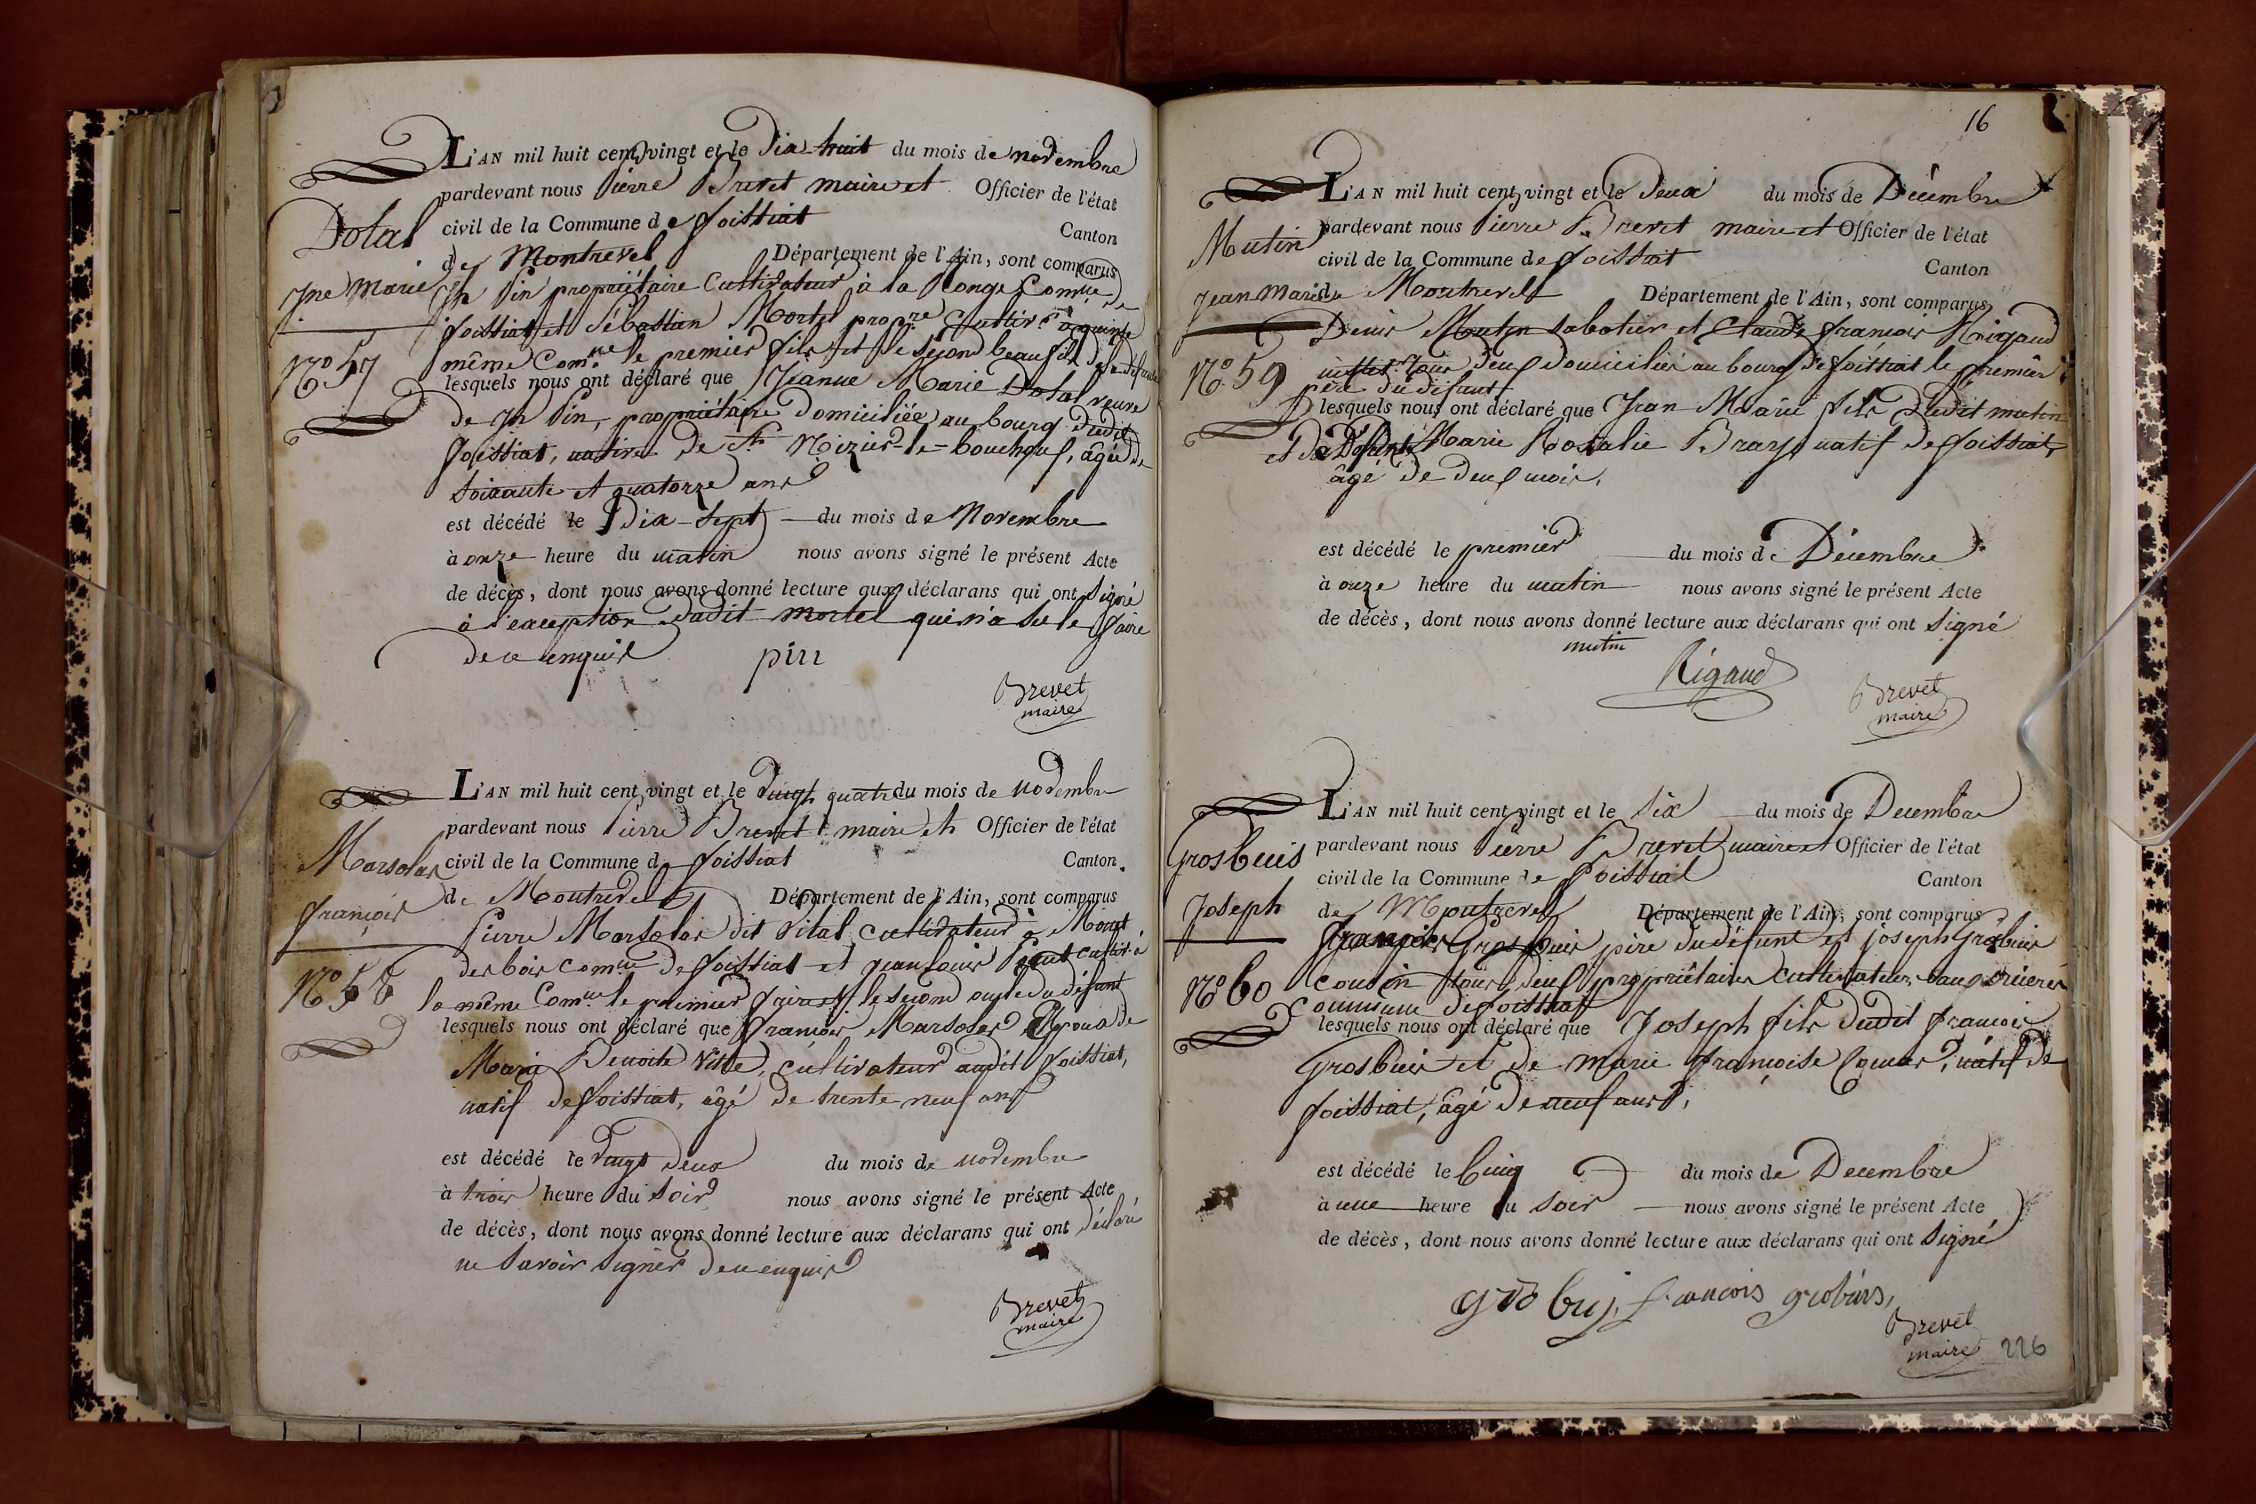 L'AN mil huit cent vingt et le Dix-huit du mois de novembre
pardevant nous Pierre Brevet maire et Officier de l'état
civil de la Commune de foissiat
Canton
de Montrevel Département de l'Ain, sont comparus
Dolal
Jne Marie
N.o 57
Jh Pin propriétaire Cultivateur à la Ronge Comne de
foissiat et Sébastian Mortel propre cultivr
même Comne le premier fils et le second beau fils de la défunte
lesquels nous ont déclaré que Jeanne Marie Dolal veuve
De Jh Pin, propriétaire Domiciliée au bourg dudit
foissiat, native De St Nizier-le-bouchoux, âgée de
soixante et quatorze ans
est décédé le Dix-Sept du mois de Novembre
à onze heure du matin nous avons signé le présent Acte
de décès, dont nous avons donné lecture aux déclarans qui ont signé
à l'exception dudit mortel qui n'a su le faire
de ce enquis pin
Brevet
maire
L'AN mil huit cent vingt et le vingt quatre du mois de novembre
pardevant nous Pierre Brevet maire et Officier de l'état
civil de la Commune de foissiat Canton
de Montrevel Département de l'Ain, sont comparus
Marsolas
françois
N.o 58
Pierre Marsolas dit Vital cultivateur à Mont
des bois comne de foissiat et jean louis cultivr à
la même Comne le premier frère et le second oncle du défunt
lesquels nous ont déclaré que françois Marsolas Epoux de
Marie Benoite Vitte, cultivateur audit foissiat,
natif de foissiat, âgé de trente neuf ans
est décédé le vingt deux du mois de novembre
à trois heure du soir nous avons signé le présent Acte
de décès, dont nous avons donné lecture aux déclarans qui ont déclaré
ne savoir signer de ce enquis
Brevet
maire
16
L'AN mil huit cent vingt et le Deux du mois de Décembre
pardevant nous Pierre Brevet maire et Officier de l'état
civil de la Commune de foissiat
Canton
de Montrevel Département de l'Ain, sont comparus
Mutin
jean marie
N.o 59
Denis Mutin sabotier et Claude françois Rigaud
tous deux Domiciliés au bourg de foissiat le premier
père du défunt
lesquels nous ont déclaré que Jean Marie fils dudit mutin
et de Marie Rosalie Bray natif de foissiat,
âgé De deux mois.
est décédé le premier du mois de Décembre
à onze heure du matin nous avons signé le présent Acte
de décès, dont nous avons donné lecture aux déclarans qui ont signé
mutin
Rigaud
Brevet
maire
L'AN mil huit cent vingt et le six du mois de Decembre
pardevant nous Pierre Brevet maire et Officier de l'état
civil de la Commune de foissiat Canton
de Montrevel Département de l'Ain, sont comparus
Grosbuis
Joseph
N.o 60
françois Grosbuis père du défunt et joseph Grosbuis
cousin tous deux propriétaires cultivateurs aux
commune de foissiat
lesquels nous ont déclaré que Joseph fils dudit françois
Grosbuis et de marie françoise natif de
foissiat, âgé De neuf ans,
est décédé le Cinq du mois de Decembre
à une heure du soir nous avons signé le présent Acte
de décès, dont nous avons donné lecture aux déclarans qui ont signé
gro buj françois grobuis,
Brevet
maire
226